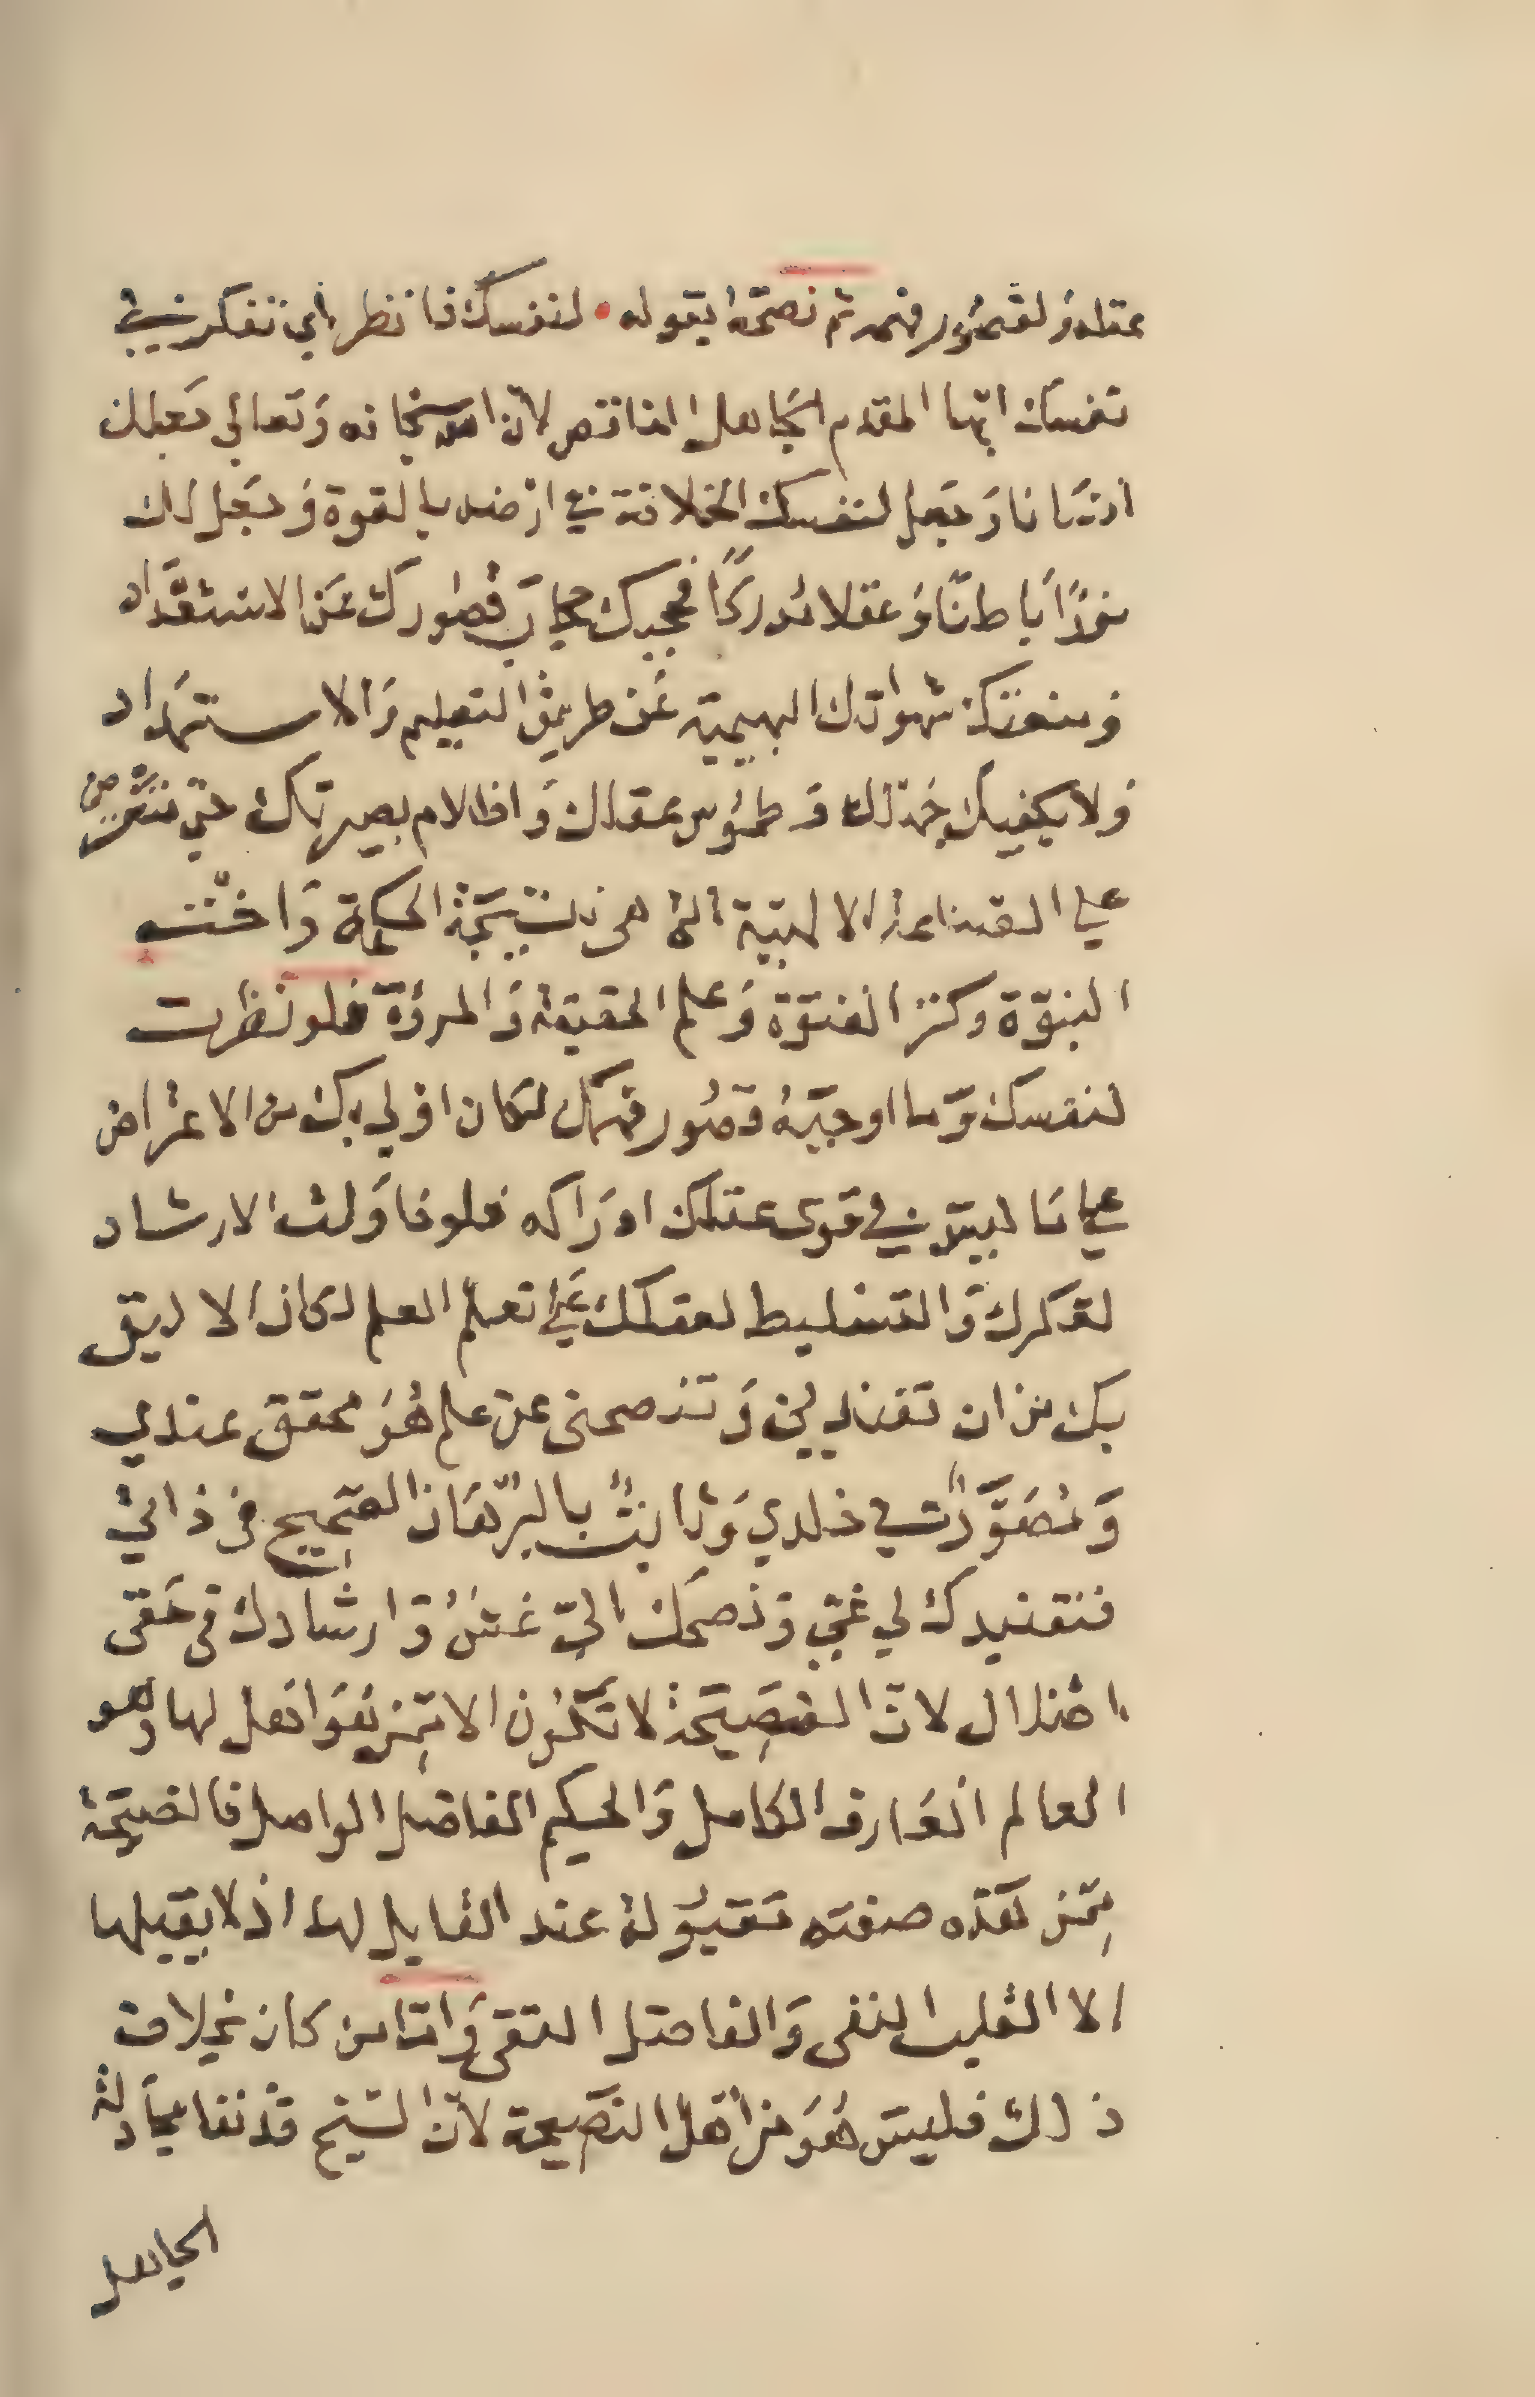 عقله ولقصور فهمه ثم نصحه بقوله • لنفسك فانظر اي تفكر في
نفسك ايها المقدم الجاهل الناقص لان الله سبحانه وتعالى جعلك
انسانا وجعل لنفسك الخلافة في ارضه بالقوة وجعل لك
نورًا باطنًا وعقلا مدركًا فحجبك حجاب قصورك عن الاستعداد
ومنعتك شهواتك البهيمية عن طريق التعليم والاستمداد
ولا يكفيك جهلك وطموس عقلك واظلام بصيرتك حتى تعترض
على الصناعة الالهية التي هي نتيجة الحكمة واخت
النبوّة وكنز الفتوّة وعلم الحقيقة والمروّة فلو نظرت
لنفسك وما اوجبه قصور فهمك لكان اولى بك من الاعتراض
على ما ليس في قوى عقلك ادراكه فلو حاولت الارشاد
لفكرك والتسليط لعقلك على تعلم العلم لكان الاليق
بك من ان تفنديني وتنصحني عن علم هو محقق عندي
ومصوّر في خلدي وثابت بالبرهان الصحيح في ذاتي
فتفنيدك لي غيّ ونصحك اليّ غش وارشادك في حقى
اضلال لان النصيحة لا تكون الا ممن هو اهل لها وهو
العالم العارف الكامل والحكيم الفاضل الواصل فالنصيحة
ممن هذه صفته مقبولة عند القابل لها اذ لا يقبلها
الا القلب النقى والفاضل التقى واما من كان بخلاف
ذلك فليس هو من اهل النصيحة لان الشيخ قد نفا مجادلة
الجاهل